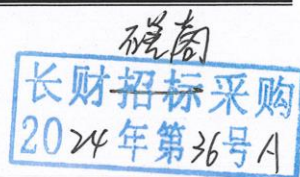 磋商
长财招标采购
2024年第36号A